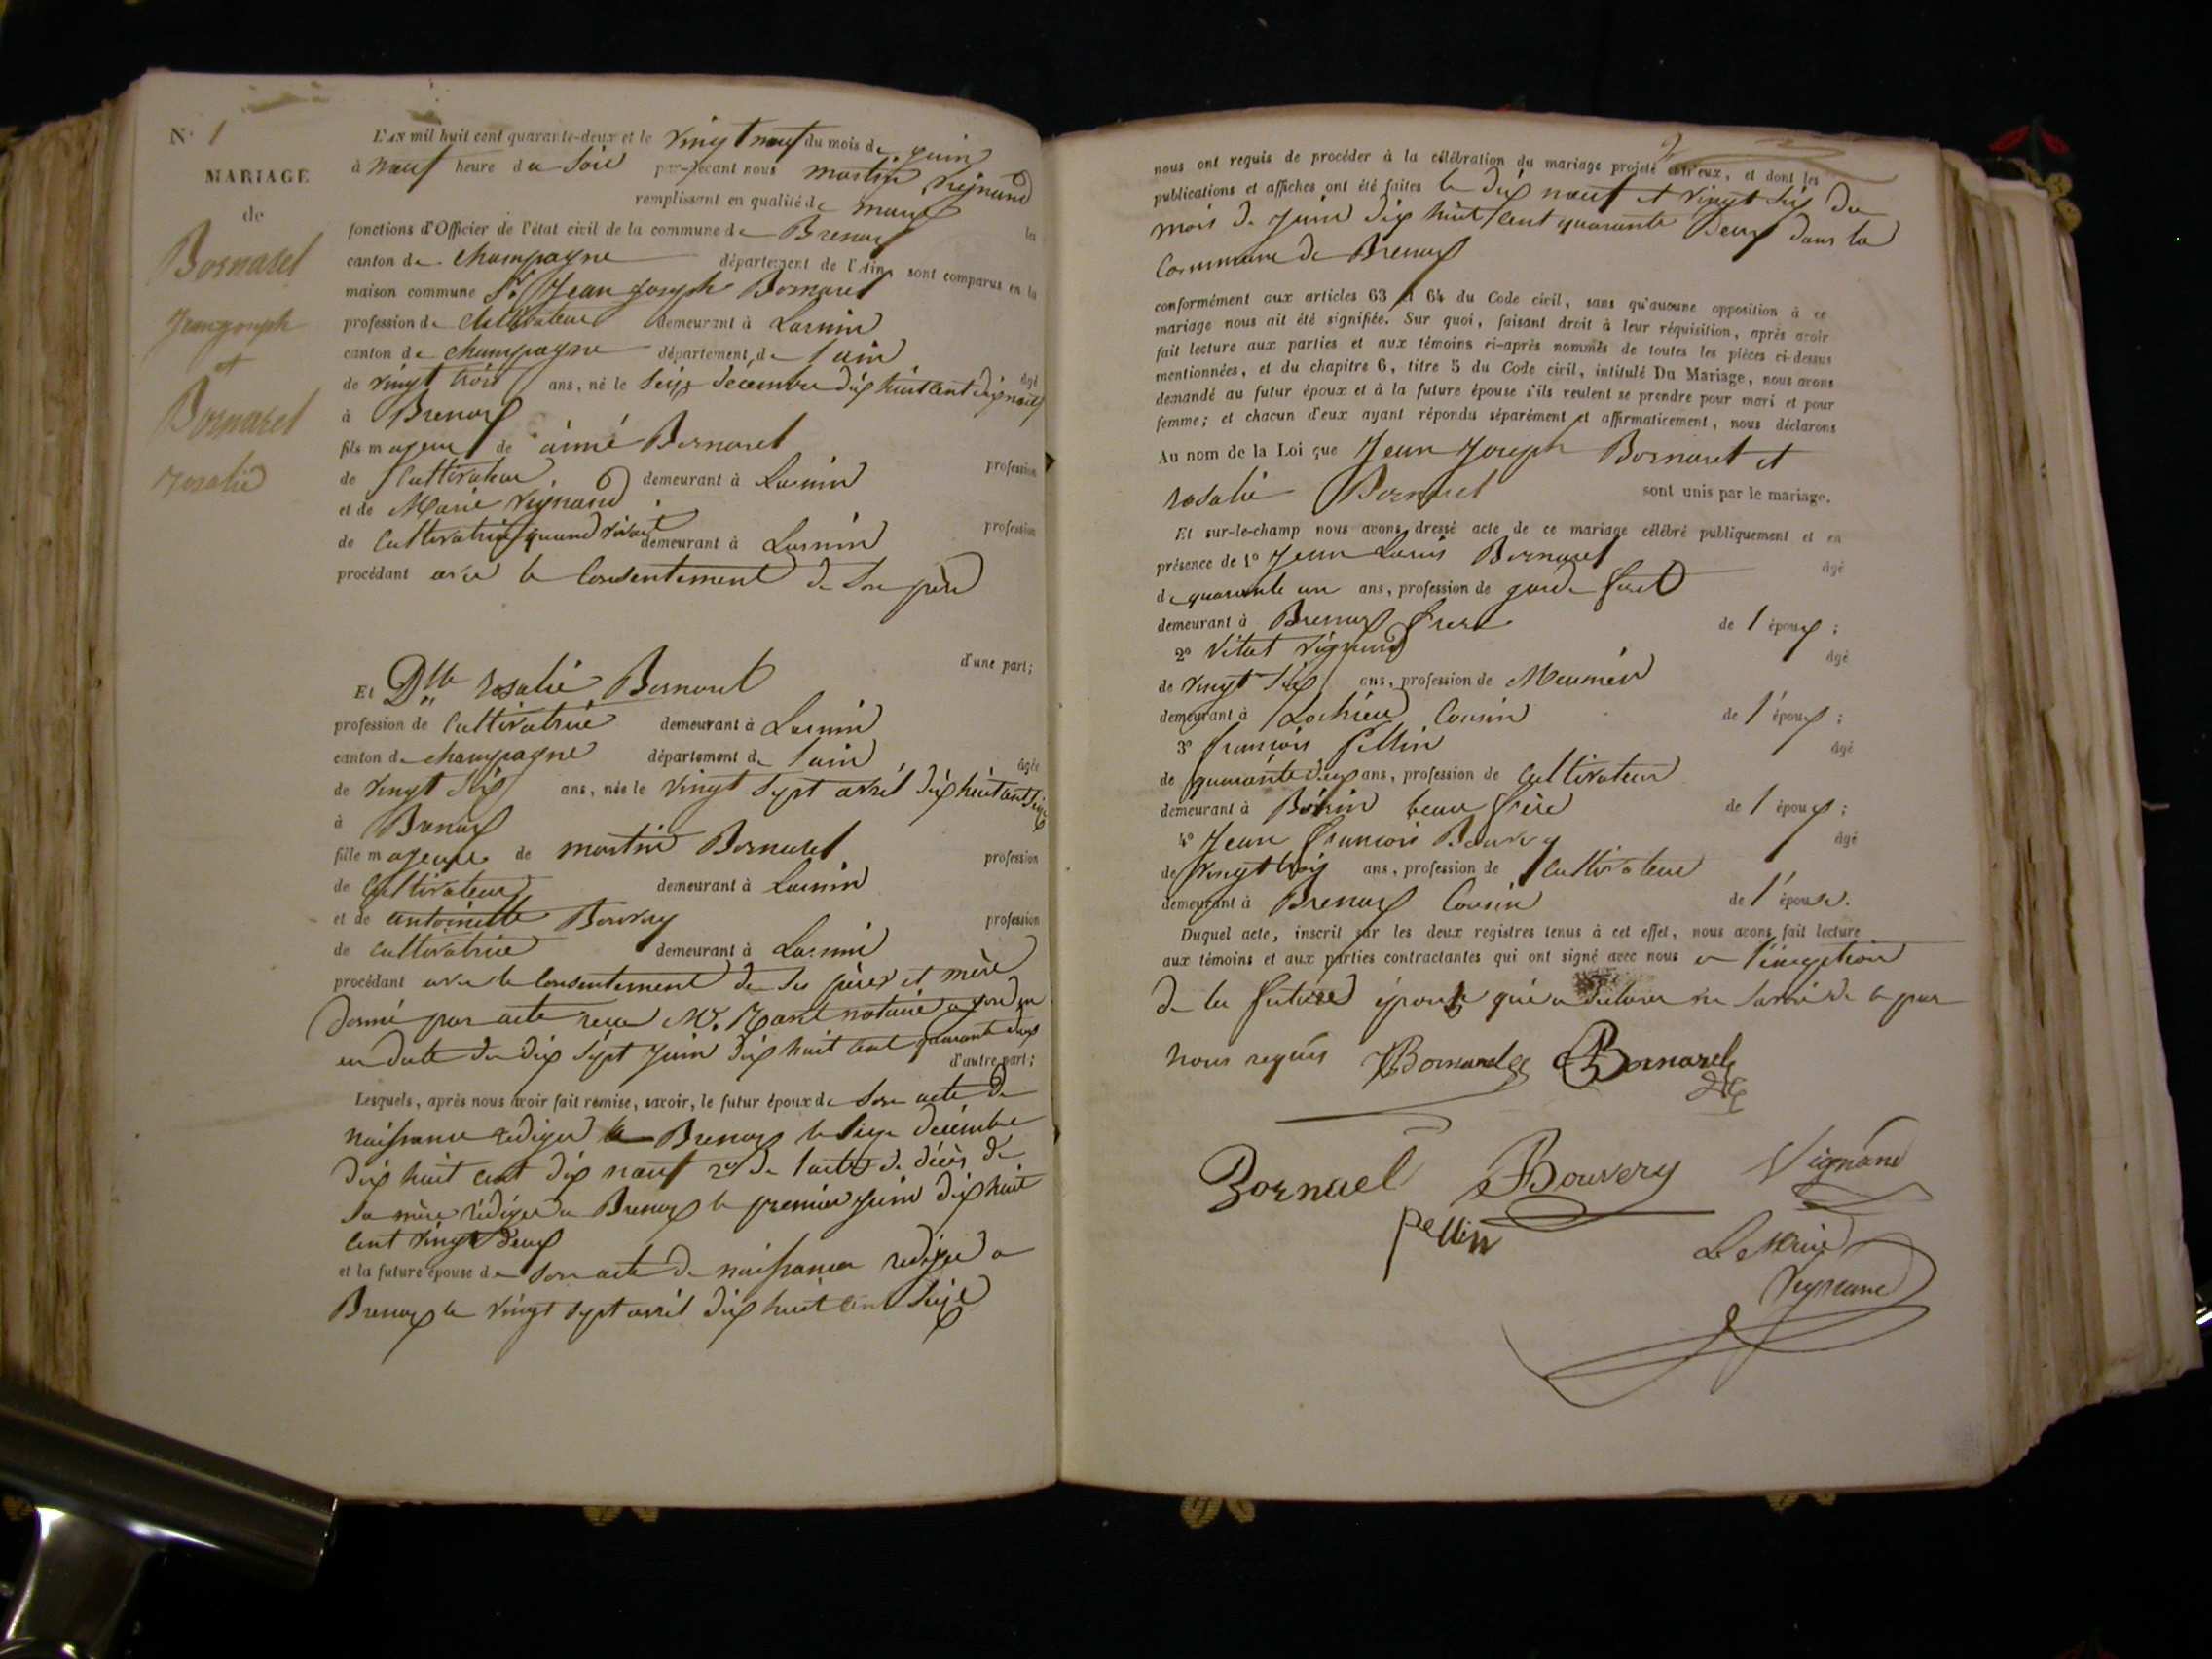 N° 1
MARIAGE
de
Bornarel
Jean joseph
et
Bornarel
rosalie
L'AN mil huit cent quarante-deux et le vingt neuf du mois de juin
à neuf heure du soir par-devant nous martin vignand
remplissant en qualité de maire les
fonctions d'Officier de l'état civil de la commune de Brenaz
canton de champagne département de l'Ain, sont comparus en la
maison commune Sr Jean joseph Bornarel
profession de Cultivateur demeurant à
canton de champagne département de l'ain âgé
de vingt trois ans, né le Seize décembre dix huit cent dix neuf
à Brenaz
fils majeur de aimé Bornarel profession
de Cultivateur demeurant à
et de Marie vignand profession
de Cultivatrice quand vivait demeurant à
procédant avec le Consentement de Son père
d'une part;
Et Dlle rosalie Bornarel
profession de Cultivatrice demeurant à
canton de champagne département de l'ain âgée
de vingt Six ans, née le vingt Sept avril dix huit cent Seize
à Brenaz
fille majeure de martin Bornarel profession
de Cultivateur demeurant à
et de antoinette Bouvery profession
de cultivatrice demeurant à
procédant avec le Consentement de Ses pères et mère
donné par acte recu Me notaire
en date du dix Sept Juin dix huit cent quarante deux
d'autre part;
Lesquels, après nous avoir fait remise, savoir, le futur époux de Son acte de
naissance rédiger a Brenaz le Seize décembre
dix huit cent dix neuf 2° de l'acte de décès de
Sa mère rédiger a Brenaz le premier Juin dix huit
Cent vingt deux
et la future épouse de Son acte de naissance rédiger a
Brenaz le vingt Sept avril dix huit cent Seize
nous ont requis de procéder à la célébration du mariage projeté entr'eux, et dont les
publications et affiches ont été faites le dix neuf et vingt Six du
mois de Juin dix huit Cent quarante Deux dans la
Commune de Brenaz
conformément aux articles 63 et 64 du Code civil, sans qu'aucune opposition à ce
mariage nous ait été signifiée. Sur quoi, faisant droit à leur réquisition, après avoir
fait lecture aux parties et aux témoins ci-après nommés de toutes les pièces ci-dessus
mentionnées, et du chapitre 6, titre 5 du Code civil, intitulé Du Mariage, nous avons
demandé au futur époux et à la future épouse s'ils veulent se prendre pour mari et pour
femme; et chacun d'eux ayant répondu séparément et affirmativement, nous déclarons
Au nom de la Loi que Jean Joseph Bornarel et
rosalie Bornarel sont unis par le mariage.
Et sur-le-champ nous avons dressé acte de ce mariage célébré publiquement et en
présence de 1° Jean Louis Bornarel âgé
de quarante un ans, profession de
demeurant à Brenaz frere de l'époux;
2° Vital vignand âgé
de vingt Six ans, profession de Meunier
demeurant à Lochieu Cousin de l'époux;
3° françois Pellin âgé
de quarante deux ans, profession de Cultivateur
demeurant à beau frère de l'époux;
4° Jean françois Bouvery âgé
de vingt trois ans, profession de Cultivateur
demeurant à Brenaz Cousin de l'épouse.
Duquel acte, inscrit sur les deux registres tenus à cet effet, nous avons fait lecture
aux témoins et aux parties contractantes qui ont signé avec nous a l'éxception
de la future épouse qui a déclarer ne Savoir de ce par
nous requis JJBornarel Bornarel
Bornael Bouvery Vignand
Pellin Le Maire
Vignand